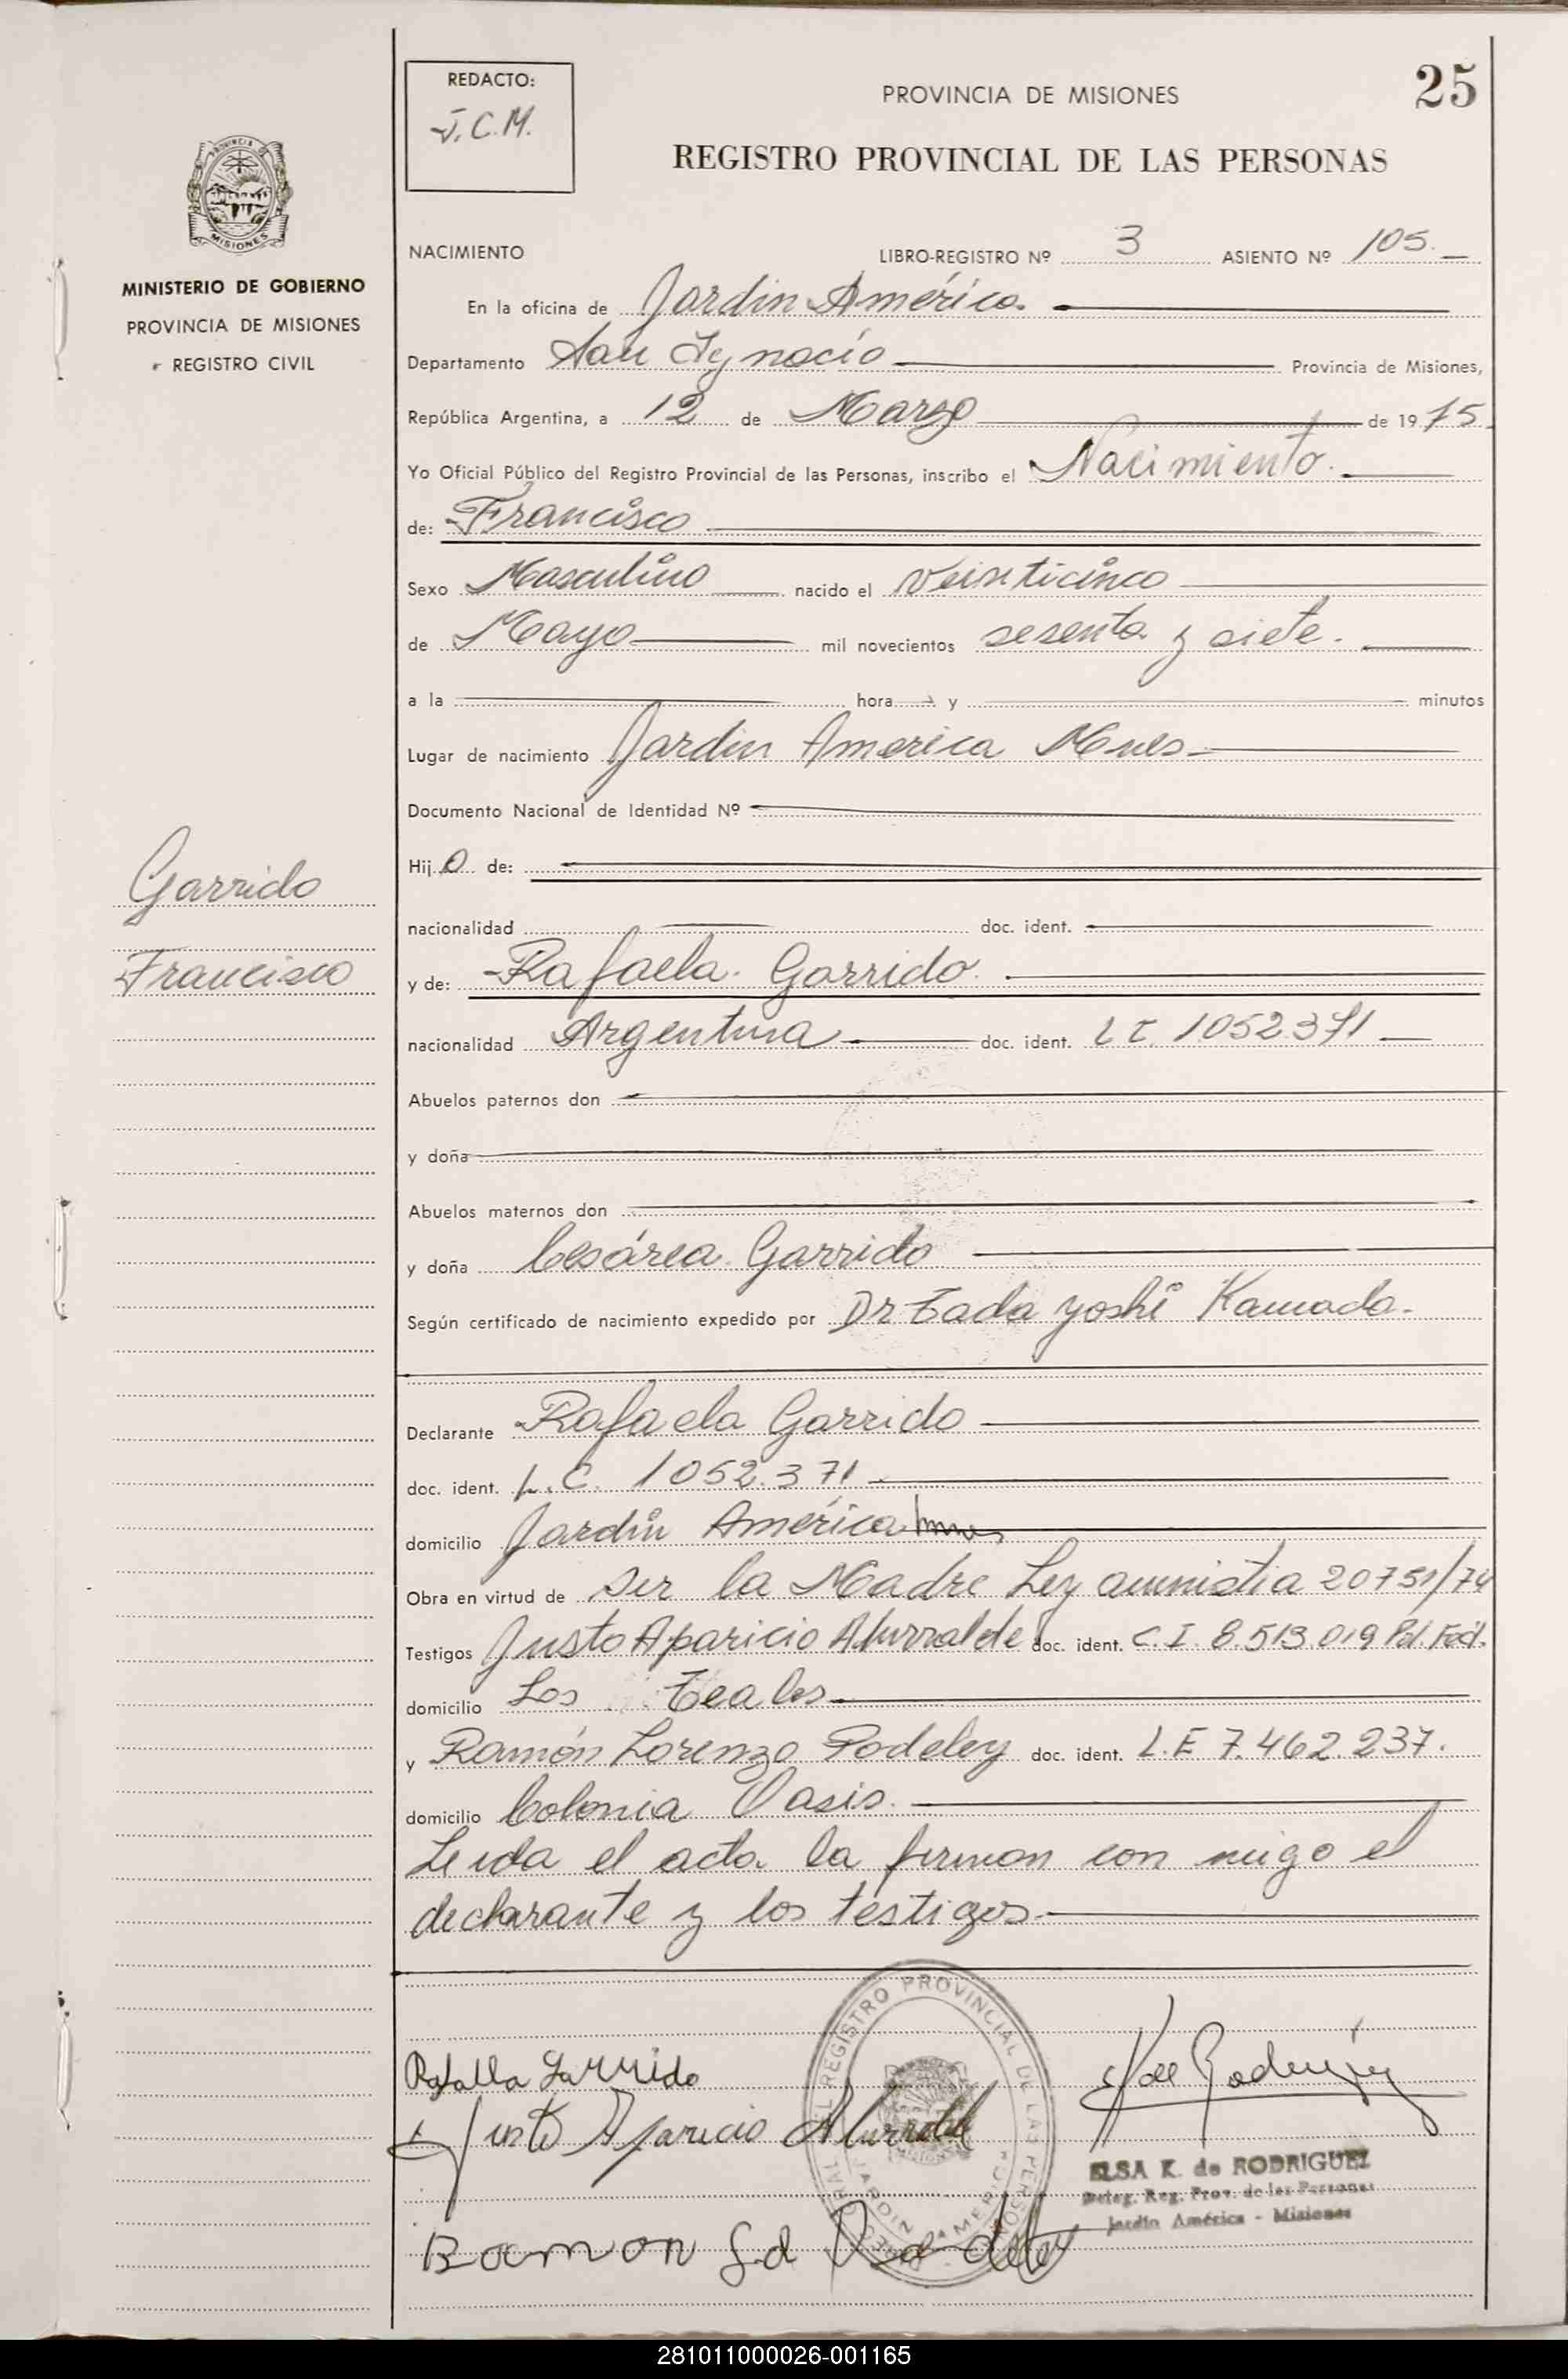 25
REDACTO:
J.C.M.
PROVINCIA DE MISIONES
REGISTRO PROVINCIAL DE LAS PERSONAS
MISIONES
MINISTERIO DE GOBIERNO
PROVINCIA DE MISIONES
REGISTRO CIVIL
NACIMIENTO LIBRO-REGISTRO Nº 3 ASIENTO Nº 105.
En la oficina de Jardin América.
Departamento San Ignacio Provincia de Misiones,
República Argentina, a 12 de Marzo de 1975.
Yo Oficial Público del Registro Provincial de las Personas, inscribo el Nacimiento.
de: Francisco
Sexo Masculino nacido el veinticinco
de Mayo mil novecientos sesenta y siete.
a la hora y minutos
Lugar de nacimiento Jardin America Mnes
Documento Nacional de Identidad Nº
Hijo de:
nacionalidad doc. ident.
Garrido
Francisco
y de: Rafaela Garrido.
nacionalidad Argentina doc. ident. 1052.371
Abuelos paternos don
y doña
Abuelos maternos don
y doña Cesárea Garrido
Según certificado de nacimiento expedido por Dr Tada yoshi Kamada.
Declarante Rafaela Garrido
doc. ident. L.C. 1052.371
domicilio Jardin América
Obra en virtud de ser la Madre Ley amnistia 20751/74
Testigos Justo Aparicio Alurralde doc. ident. C.I. 8.513.019 Pol. Fed.
domicilio Los Teales
y Ramón Lorenzo Podeley doc. ident. L.E 7.462.237.
domicilio Colonia Oasis.
Leida el acta la firman con migo el
declarante y los testigos.
REGISTRO PROVINCIAL DE LAS PERSONAS
JARDIN AMERICA
Rafalla Garrido
Justo Aparicio Alurralde
ELSA K. de RODRIGUEZ
Deleg. Reg. Prov. de las Personas
Jardín América - Misiones
281011000026-001165